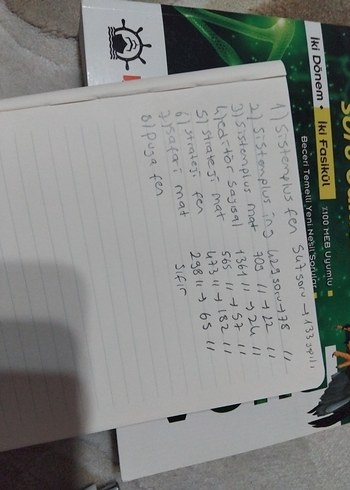 İki Dönem • İki Fasikül
2100 MEB Uyumlu
Beceri Temelli Yeni Nesil Sorular
1) Sistemplus fen 547 soru → 133 yapılı
2) Sistemplus ing 429 soru → 78 "
3) Sistemplus mat 709 " → 22 "
4) editör sayısal 1361 " → 24 "
5) strateji mat 565 " → 57 "
6) strateji fen 473 " → 182 "
7) safari mat 298 " → 65 "
8) puga fen sıfır